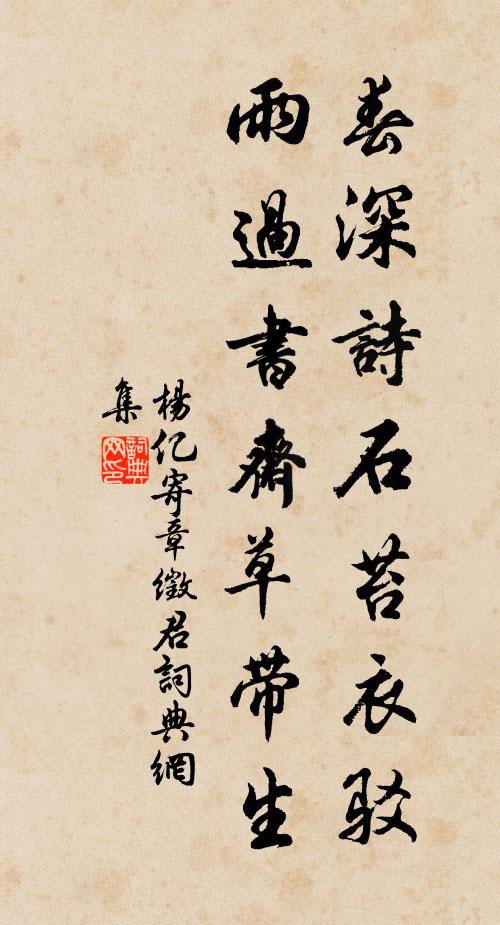 春深詩石苔衣駁
雨過書齋草带生
楊亿寄章徵君詞典網
集
詞典
网印